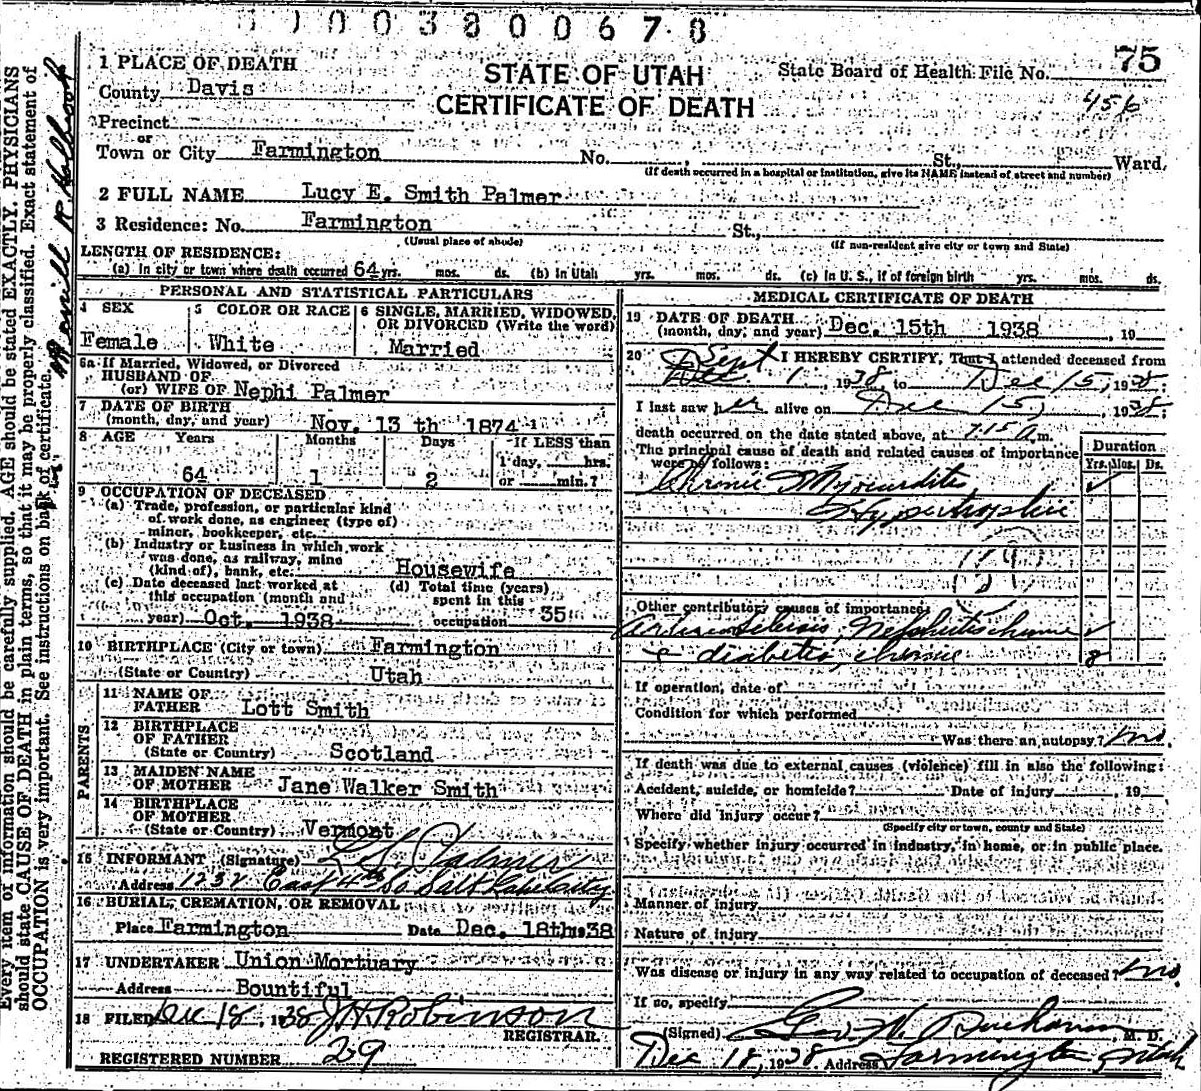 1 0 0 3 8 0 0 6 7 8
75
1 PLACE OF DEATH
County Davis
STATE OF UTAH
State Board of Health File No.
CERTIFICATE OF DEATH
456
Precinct
or
Town or City Farmington No. , St., Ward
(If death occurred in a hospital or institution, give its NAME instead of street and number)
2 FULL NAME Lucy E. Smith Palmer
3 Residence: No. Farmington St.,
(Usual place of abode) (If non-resident give city or town and State)
LENGTH OF RESIDENCE:
(a) In city or town where death occurred 64 yrs. mos. ds. (b) In Utah yrs. mos. ds. (c) In U. S., if of foreign birth yrs. mos. ds.
PERSONAL AND STATISTICAL PARTICULARS
4 SEX
Female
5 COLOR OR RACE
White
6 SINGLE, MARRIED, WIDOWED,
OR DIVORCED (Write the word)
Married
6a If Married, Widowed, or Divorced
HUSBAND OF
(or) WIFE OF Nephi Palmer
7 DATE OF BIRTH
(month, day, and year) Nov. 13 th 1874
8 AGE Years Months Days If LESS than
1 day, hrs.
64 1 2 or min.?
9 OCCUPATION OF DECEASED
(a) Trade, profession, or particular kind
of work done, as engineer (type of)
miner, bookkeeper, etc.
(b) Industry or business in which work
was done, as railway, mine
(kind of), bank, etc. Housewife
(c) Date deceased last worked at
this occupation (month and
year) Oct. 1938
(d) Total time (years)
spent in this
occupation 35
10 BIRTHPLACE (City or town) Farmington
(State or Country) Utah
PARENTS
11 NAME OF
FATHER Lott Smith
12 BIRTHPLACE
OF FATHER
(State or Country) Scotland
13 MAIDEN NAME
OF MOTHER Jane Walker Smith
14 BIRTHPLACE
OF MOTHER
(State or Country) Vermont
15 INFORMANT (Signature) Palmer
Address 1232 East 4th So Salt Lake City
16 BURIAL, CREMATION, OR REMOVAL
Place Farmington Date Dec. 18th 38
17 UNDERTAKER Union Mortuary
Address Bountiful
18 FILED Dec 18, 1938 J H Robinson
REGISTRAR.
REGISTERED NUMBER 29
MEDICAL CERTIFICATE OF DEATH
19 DATE OF DEATH
(month, day, and year) Dec. 15th 1938 , 19
20 Sept I HEREBY CERTIFY, That I attended deceased from
Dec 1, 1938, to Dec 15, 1938;
I last saw her alive on Dec 15, 1938;
death occurred on the date stated above, at 7:15 A m.
The principal cause of death and related causes of importance
were as follows:
Duration
Yrs. Mos. Ds.
Chronic Myocarditis
Hypertrophic
Other contributory causes of importance:
Arteriosclerosis, Nephritis chronic
& diabetis, chronic 8
If operation, date of
Condition for which performed
Was there an autopsy? no.
If death was due to external causes (violence) fill in also the following:
Accident, suicide, or homicide? Date of injury , 19
Where did injury occur?
(Specify city or town, county and State)
Specify whether injury occurred in industry, in home, or in public place.
Manner of injury
Nature of injury
Was disease or injury in any way related to occupation of deceased? no.
If so, specify
(Signed) Geo. W. Buchanan M. D.
Dec 18, 1938 Address Farmington Utah
Every item of information should be carefully supplied. AGE should be stated EXACTLY. PHYSICIANS
should state CAUSE OF DEATH in plain terms, so that it may be properly classified. Exact statement of
OCCUPATION is very important. See instructions on back of certificate.